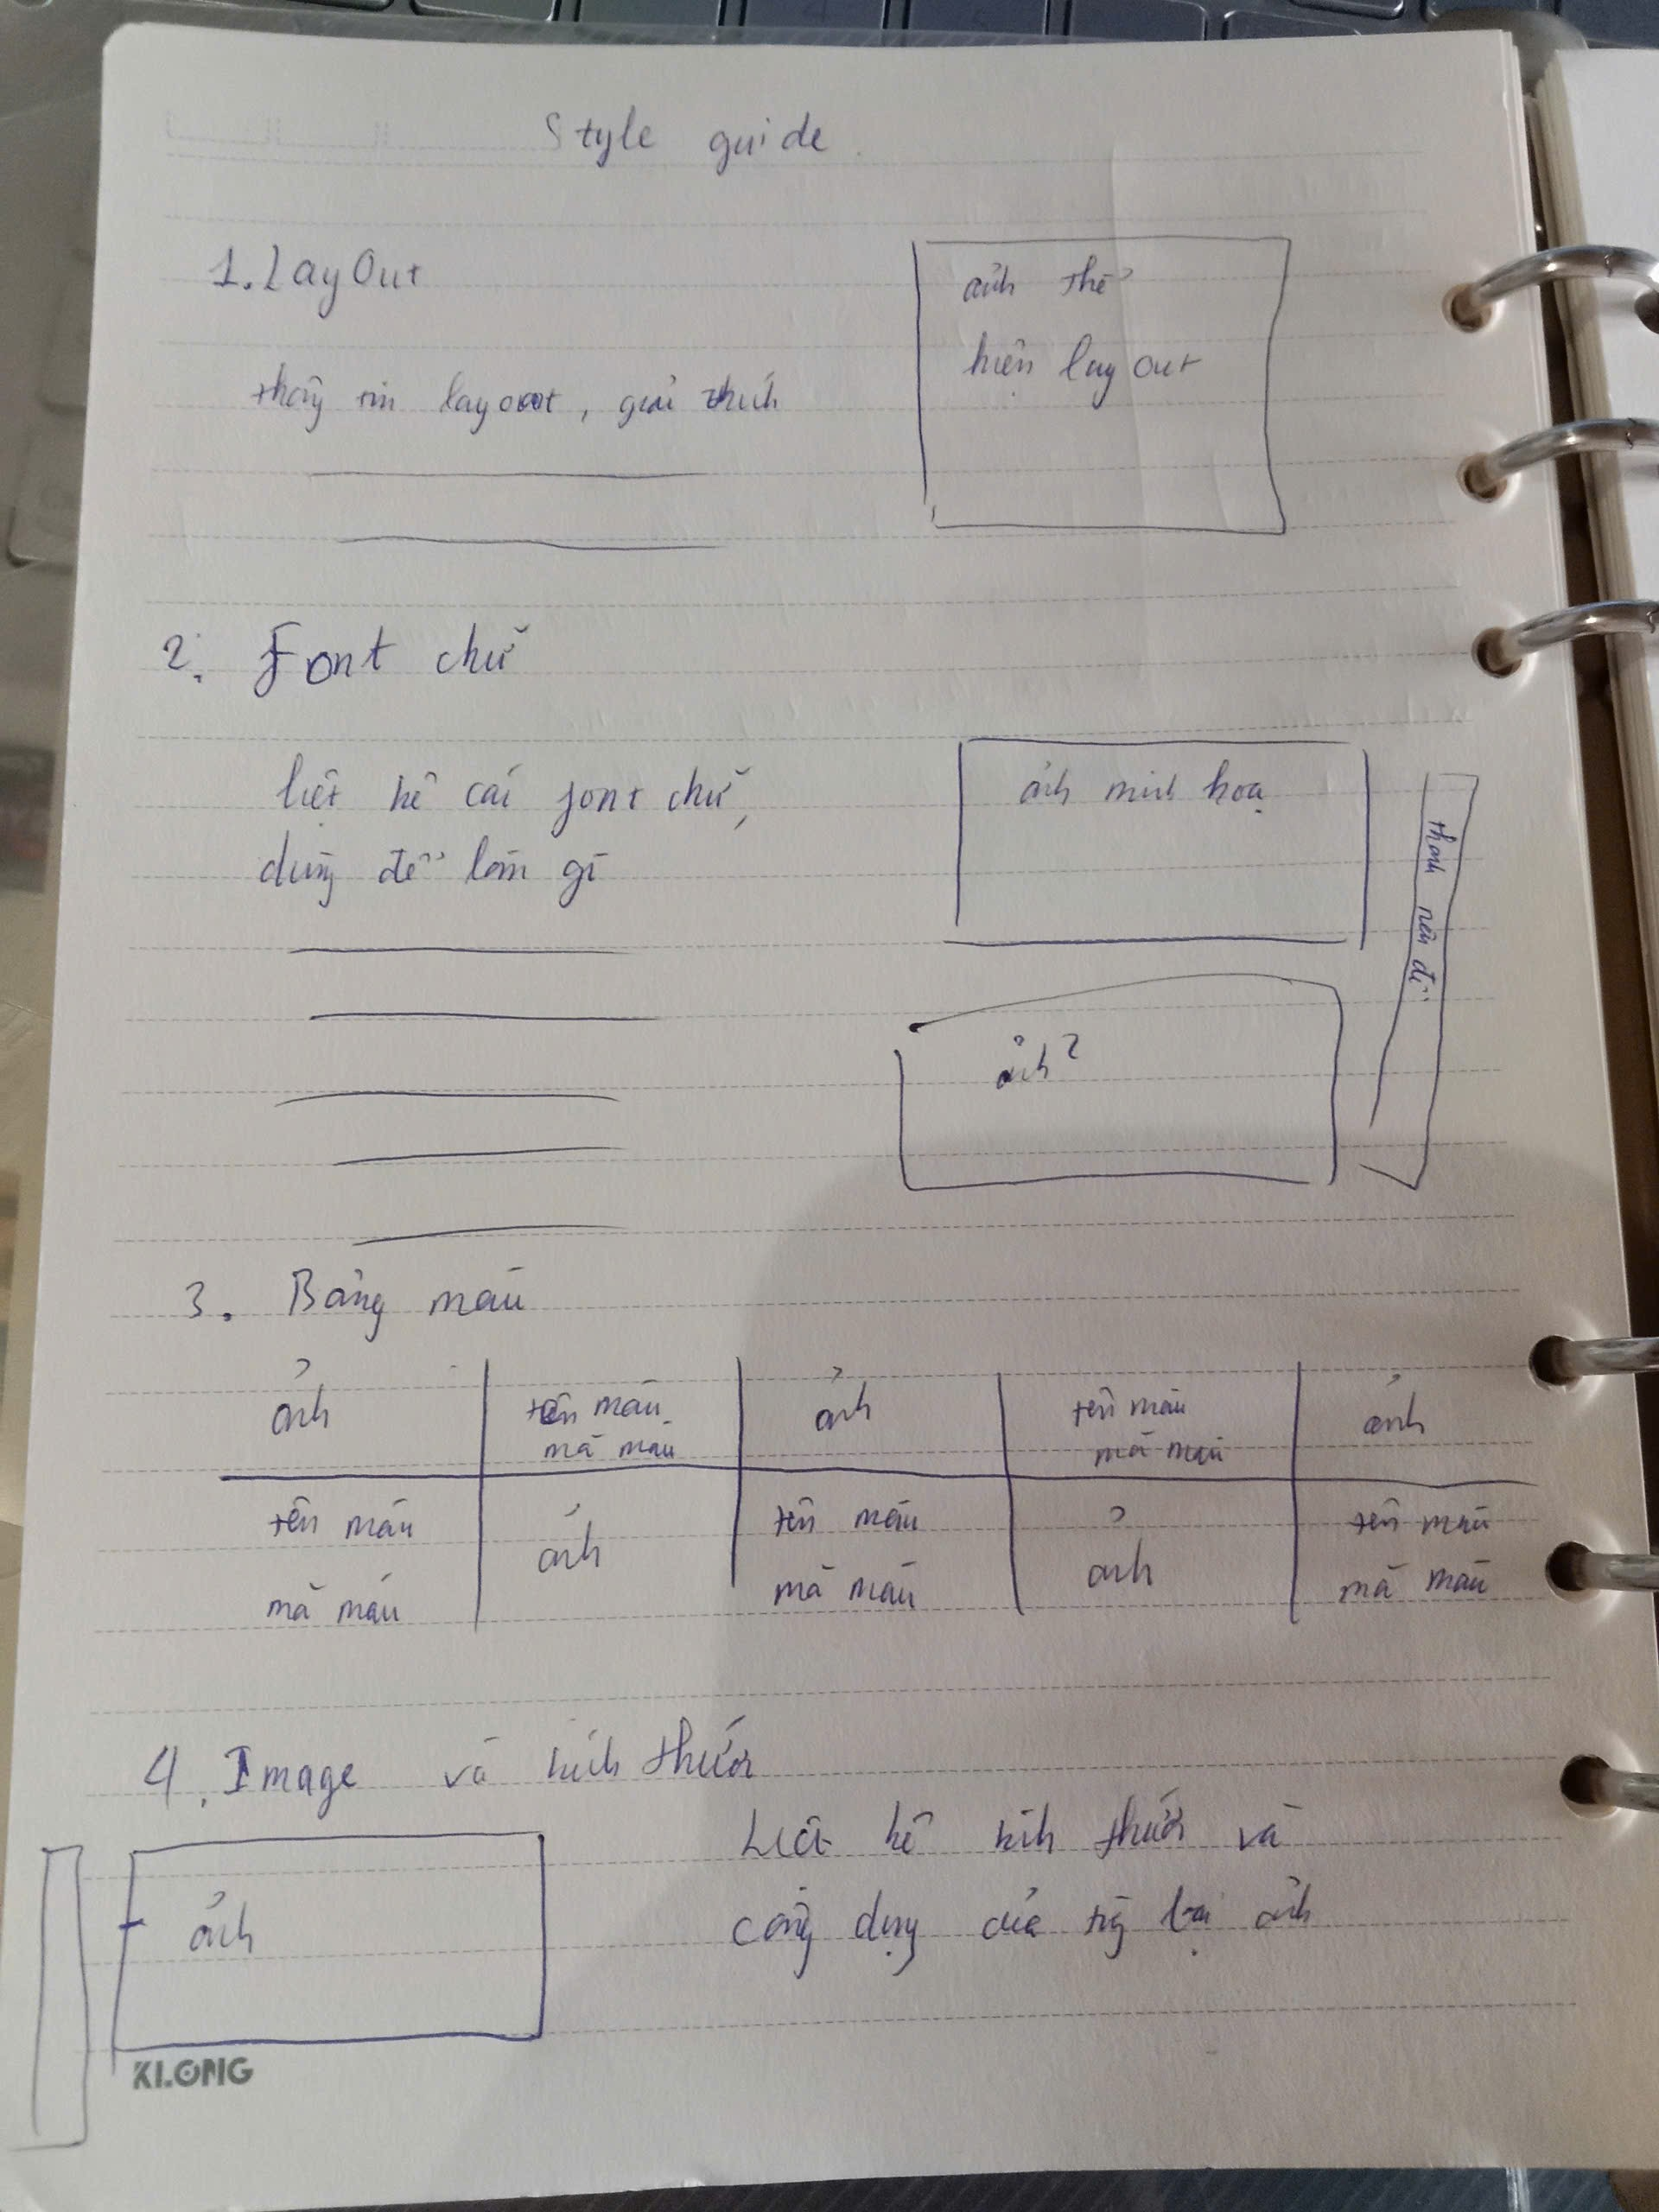 Style guide
1. LayOut
thông tin layout, giải thích
ảnh thể
hiện layout
2. Font chữ
liệt kê các font chữ,
dùng để làm gì
ảnh minh hoạ
ảnh 2
3. Bảng màu
ảnh tên màu ảnh tên màu ảnh
mã màu mã màu
tên màu ảnh tên màu ảnh tên màu
mã màu mã màu mã màu
4. Image và kích thước
ảnh
Liệt kê kích thước và
công dụng của từng loại ảnh
KLONG